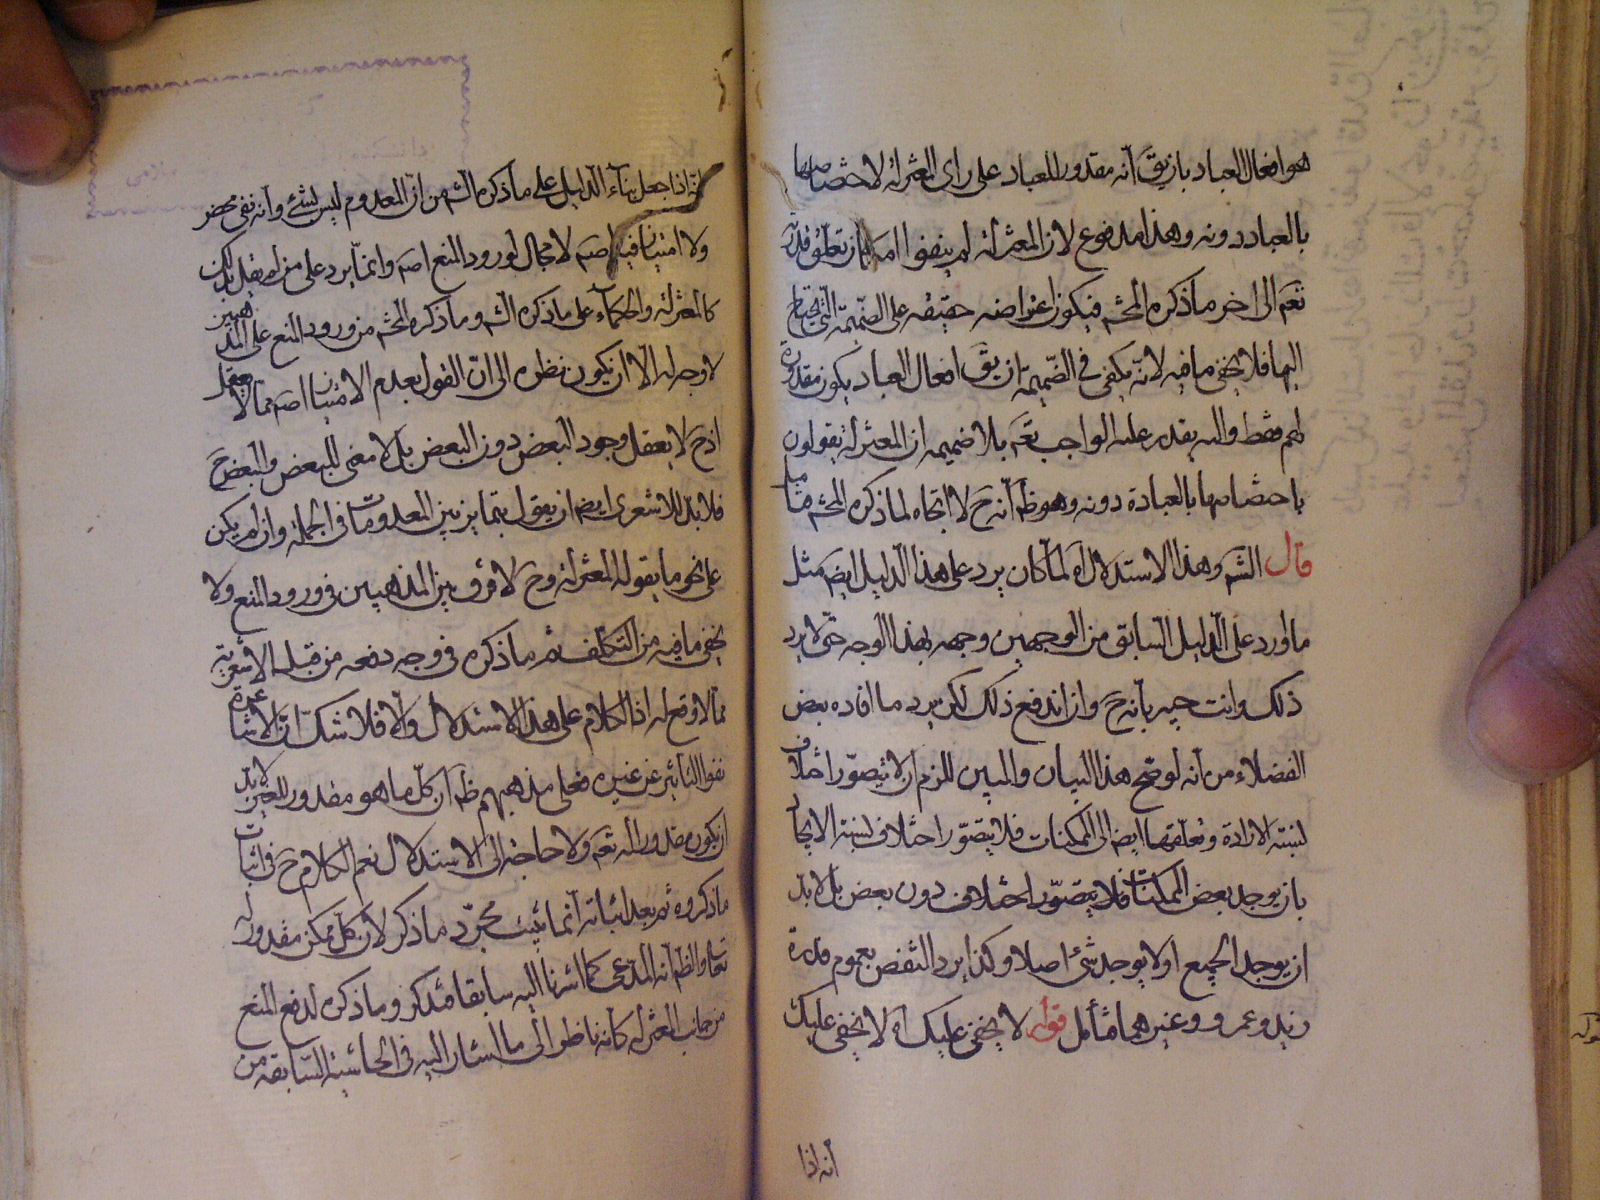 هو افعال العباد بان يقَ انّه مقدور للعباد على راى المعتزلة لاختصاصها
بالعباد دونه وهذا مدفوع لان المعتزلة لم ينفوا امكان تعلّق قدرته
تعَم الى اخر ما ذكره المحشم فيكون اعتراضه حقيقة على الضّميمة التى يحتاج
اليها فلا يخفى ما فيه لانّه يكفى فى الضّميمة ان يقَ افعال العباد يكون مقدورة
لهم فقط واليه يقدر عليه الواجب تعَم بلا ضميمة ان المعتزلة يقولون
باختصاصها بالعبادة دونه وهو ظَم انّه حَ لا اتجاه لما ذكره المحشم
قال الشم وهذا الاستدلال اه لما كان يرد على هذا الدّليل ايضم مثل
ما اورد على الدّليل السّابق من الوجهين وجهه بهذا الوجه حتّى لا يرد
ذلك وانت خبير بانه حَ وان اندفع ذلك لكن يرد ما افاده بعض
الفضلاء من انّه لو صحّ هذا البيان والمبين للزم ان لا يتصوّر اختلاف
لنسبة الارادة وتعلّقها ايضم الى الممكنات فلا يتصوّر اختلاف لنسبة الايجاد
بان يوجد بعض الممكنات فلا يتصوّر اختلاف دون بعض بل لا بدّ
ان يوجد الجميع او لا يوجد شئ اصلا وكذا يرد النقض بعموم قدرة
زيد وعمرو وغيرهما فتأمل قوله لا يخفى عليك اه لا يخفى عليك
انه اذا
انّه اذا جعل بناء الدّليل على ما ذكره الشم من انّ المعدوم ليس بشئ وانّه نفى محض
ولا امتياز فيه اصم لا مجال لورود المنع اصم وانّما يرد على من لم يقل بذلك
كالمعتزلة والحكماء على ما ذكره الشم وما ذكره المحشم من ورود المنع على المذهبين
لا وجه له الّا ان يكون نظره الى انّ القول بعدم الامتياز اصم ممّا لا يعقل
اذ حَ لا يعقل وجود البعض دون البعض بل لا معنى للبعض والبعض حَ
فلا بدّ للاشعرى ايضم ان يقول بتمايز بين المعدومات فى الجملة وان لم يكن
على نحو ما يقوله المعتزلة وحَ لا فرق بين المذهبين فى ورود المنع ولا
يخفى ما فيه من التكلّف ثم ما ذكره فى وجه دفعه من قبل الاشعرية
ممّا لا وقع له اذا الكلام على هذا الاستدلال والّا فلا شك انّ الاشاعرة
نفوا التاثير عن غيره فعلى مذهبهم ظَم ان كلّ ما هو مقدور للغير لا بدّ
ان يكون مقدورا له تعَم ولا حاجة الى الاستدلال نعم الكلام حَ فى اثبات
ما ذكروه ثم بعد اثباته انّما يثبت مجرّد ما ذكر لا ان كلّ ممكن مقدور له
تعالى والظَم انّه المدّعى كما اشرنا اليه سابقا فتذكر وما ذكره لدفع المنع
من جانب المعتزلة كانّه ناظر الى ما اشار اليه فى الحاشية السّابقة من